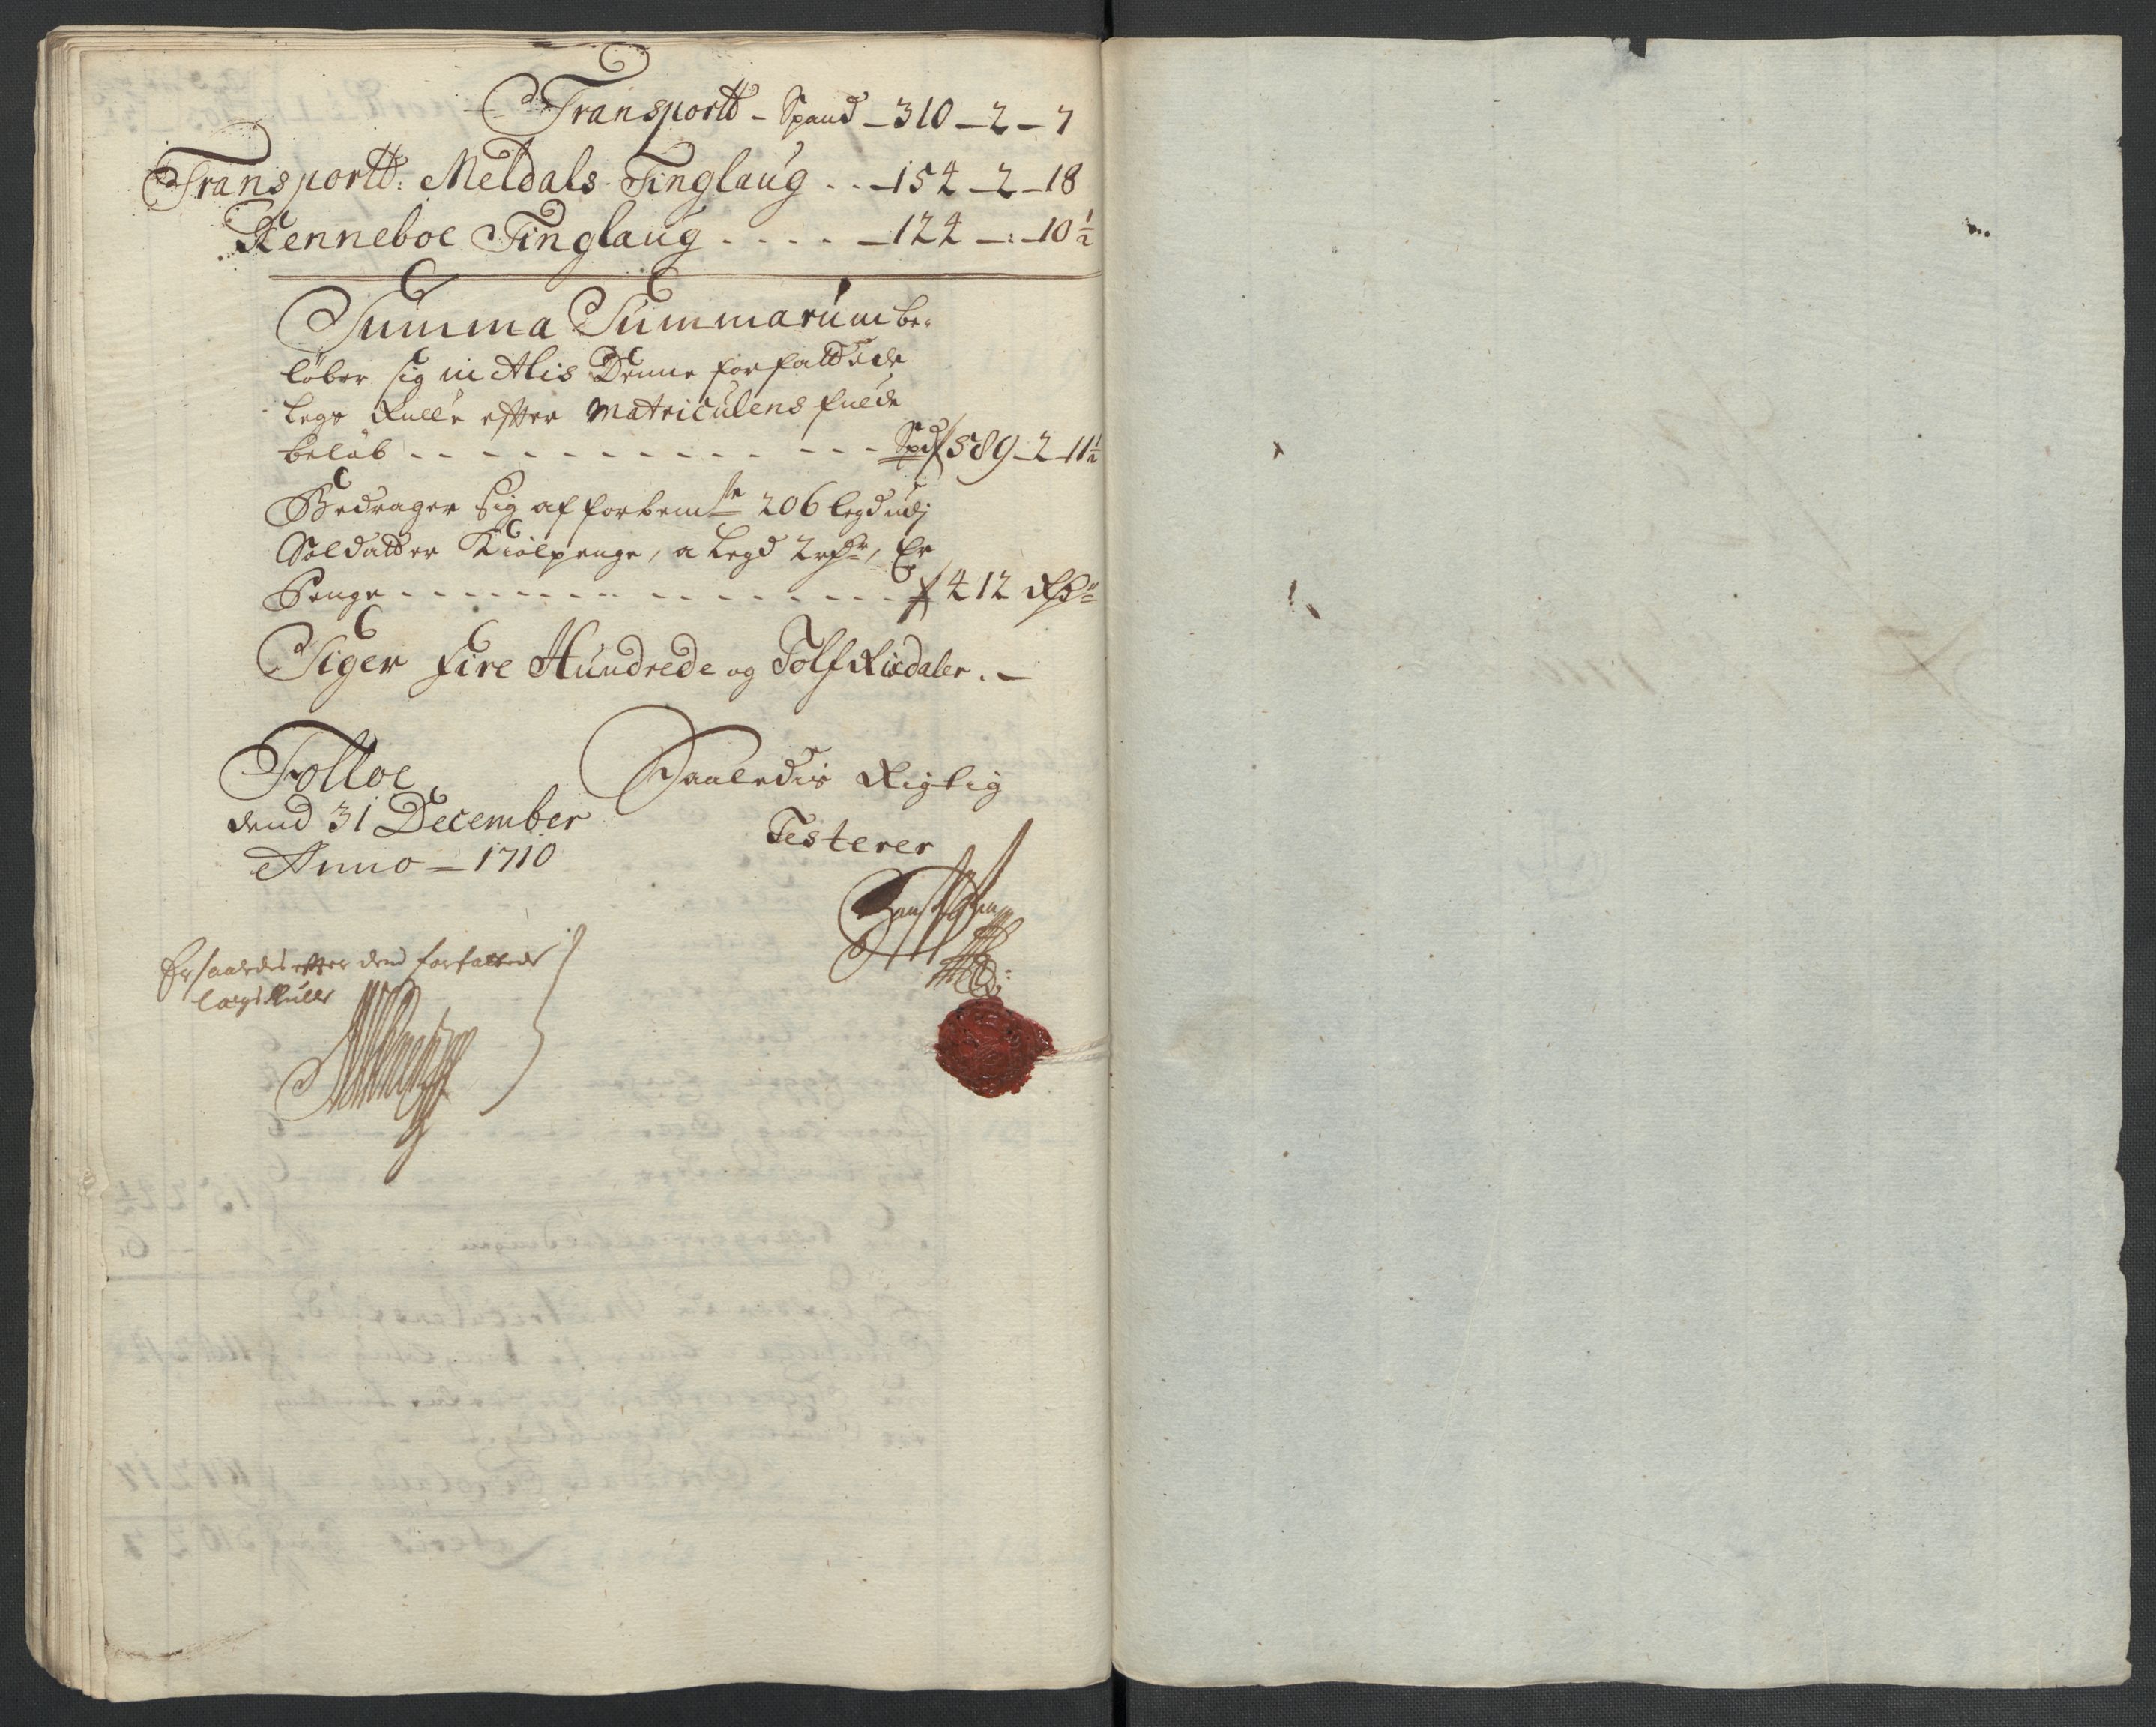 Transportt - Spand - 310 - 2 - 7
Transportt: Meldals Tinglaug . . - 154 - 2 - 18
Renneboe Tinglaug . . . . - 124 - : - 10 1/2
Summa Summarum be-
løber sig Denne forfattede
Legs Rulle efter Matriculens fulde
beløb - - - - - - - - - - - - Spd 589 - 2 - 11 1/2
Bedrager sig af forbemte 206 legd udj
Soldatter Kiolpenge, a Legd 2 rdr, Er
Penge - - - - - - - - - - - - - - 412 Rdr
Siger fire Hundrede og Tolf Rixdaler. -
Folloe
dend 31 December
Anno - 1710
Saaledis Rigtig
Testerer
Er saaledes efter dend forfattede
lægs Rulle